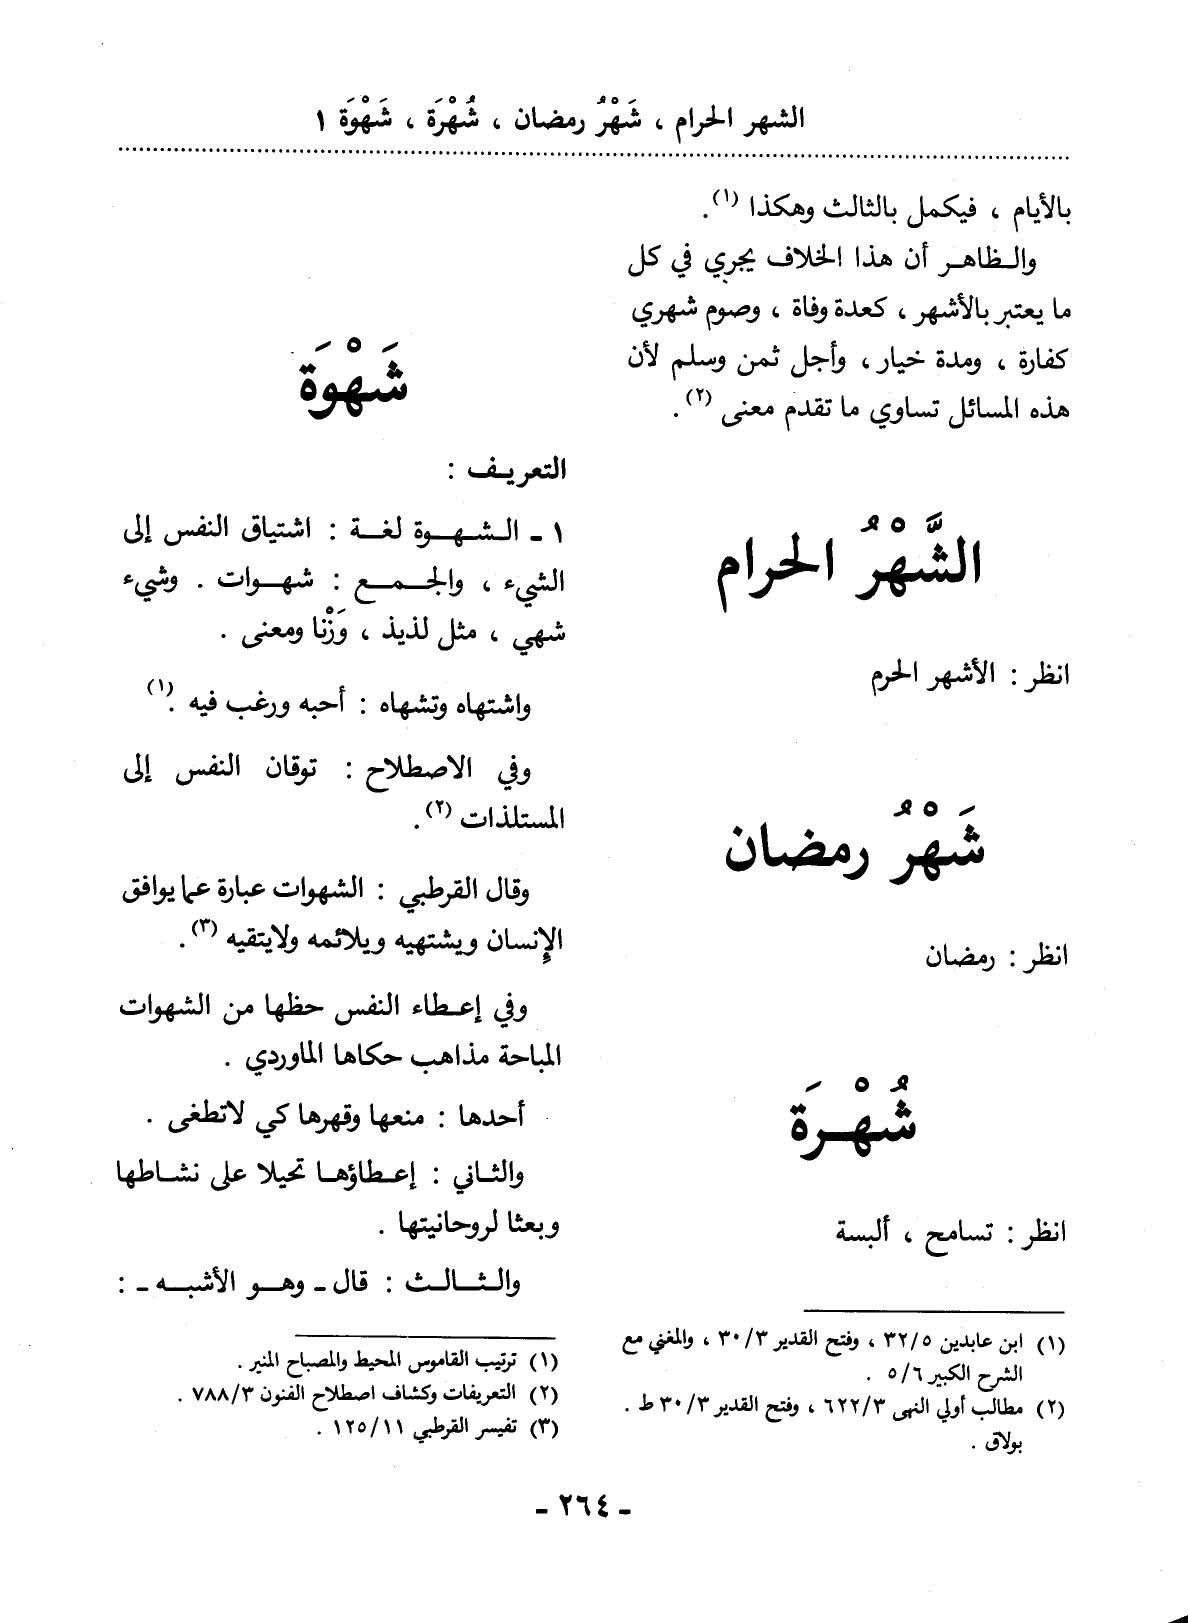 الشهر الحرام ، شَهْرُ رمضان ، شُهْرَة ، شَهْوَة ١
بالأيام ، فيكمل بالثالث وهكذا (١).
والظاهر أن هذا الخلاف يجري في كل
ما يعتبر بالأشهر ، كعدة وفاة ، وصوم شهري
كفارة ، ومدة خيار ، وأجل ثمن وسلم لأن
هذه المسائل تساوي ما تقدم معنى (٢).
الشَّهْرُ الحرام
انظر : الأشهر الحرم
شَهْرُ رمضان
انظر : رمضان
شُهْرَة
انظر : تسامح ، ألبسة
(١) ابن عابدين ٣٢/٥ ، وفتح القدير ٣٠/٣ ، والمغني مع
الشرح الكبير ٥/٦ .
(٢) مطالب أولي النهى ٦٢٢/٣ ، وفتح القدير ٣٠/٣ ط .
بولاق .
شَهْوَة
التعريف :
١ ـ الشهوة لغة : اشتياق النفس إلى
الشيء ، والجمع : شهوات . وشيء
شهي ، مثل لذيذ ، وَزْنا ومعنى .
واشتهاه وتشهاه : أحبه ورغب فيه .(١)
وفي الاصطلاح : توقان النفس إلى
المستلذات (٢).
وقال القرطبي : الشهوات عبارة عما يوافق
الإنسان ويشتهيه ويلائمه ولايتقيه (٣).
وفي إعطاء النفس حظها من الشهوات
المباحة مذاهب حكاها الماوردي .
أحدها : منعها وقهرها كي لاتطغى .
والثاني : إعطاؤها تحيلا على نشاطها
وبعثا لروحانيتها .
والثالث : قال ـ وهو الأشبه ـ :
(١) ترتيب القاموس المحيط والمصباح المنير .
(٢) التعريفات وكشاف اصطلاح الفنون ٧٨٨/٣ .
(٣) تفيسر القرطبي ١٢٥/١١ .
ـ ٢٦٤ ـ